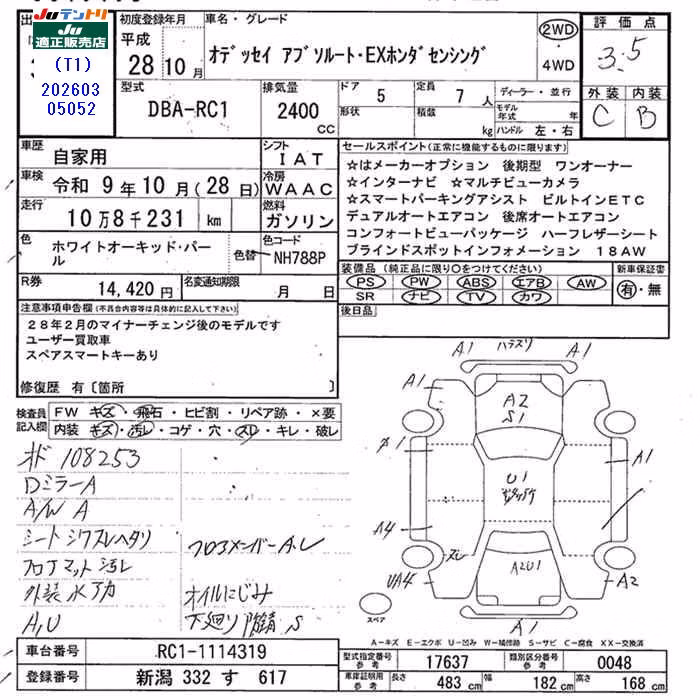 Juテントリ
JU
適正販売店
(T1)
202603
05052
初度登録年月
平成
28年10月
車名・グレード
オデッセイ アブソルート・EXホンダセンシング
2WD
・
4WD
評価点
3.5
外装 内装
C B
型式
DBA-RC1
排気量
2400
CC
ドア
5
形状
定員
7人
積載
kg
ディーラー・並行
モデル年式 年
ハンドル 左・右
車歴
自家用
シフト
IAT
車検
令和 9年10月(28日)
冷房
WAAC
走行
10万8千231 km
燃料
ガソリン
色
ホワイトオーキッド・パール
色替
色コード
NH788P
R券
14,420円
名変通知期限
月 日
セールスポイント(正常に機能するものに限ります)
☆はメーカーオプション 後期型 ワンオーナー
☆インターナビ ☆マルチビューカメラ
☆スマートパーキングアシスト ビルトインETC
デュアルオートエアコン 後席オートエアコン
コンフォートビューパッケージ ハーフレザーシート
ブラインドスポットインフォメーション 18AW
装備品(純正品に限り○をつけてください)
PS PW ABS エアB AW
SR ナビ TV カワ
新車保証書
有・無
後日品
注意事項申告欄(不具合内容等は具体的に記入して下さい)
28年2月のマイナーチェンジ後のモデルです
ユーザー買取車
スペアスマートキーあり
修復歴 有〔箇所 〕
検査員記入欄
FW キズ・飛石・ヒビ割・リペア跡・×要
内装 キズ・汚レ・コゲ・穴・スレ・キレ・破レ
108253
DミラーA
A/W A
シートシワスレヘタリ
フロアマット汚レ
外装水アカ
A,U
フロアメンバーA.レ
オイルにじみ
下廻り防錆.S
A1 ハテスリ A1
A1
A2
S1
A1
A1
U1
A4
スレ
UA4
A2U1
A2
A1
スペア
A-キズ E-エクボ U-凹み W-補修跡 S-サビ C-腐食 XX-交換済
車台番号
RC1-1114319
登録番号
新潟 332 す 617
型式指定番号 参考
17637
類別区分番号 参考
0048
車庫証明用 参考
長さ 483 cm 幅 182 cm 高さ 168 cm